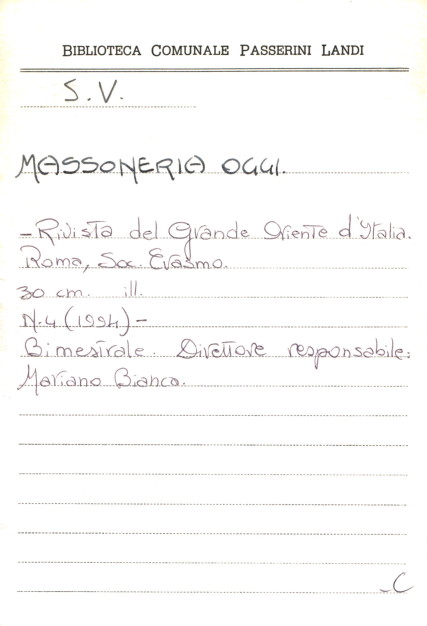 BIBLIOTECA COMUNALE PASSERINI LANDI
S.V.
MASSONERIA OGGI.
- Rivista del Grande Oriente d'Italia.
Roma, Soc. Erasmo.
30 cm. ill.
N.4 (1994) -
Bimestrale. Direttore responsabile:
Mariano Bianca.
_C